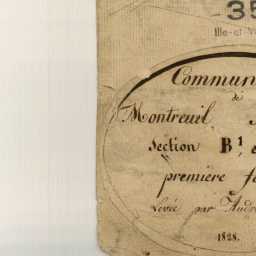 35
Ille-et-V
Commun
de
Montreuil
Section B¹ e
première fe
Levée par André
1828.